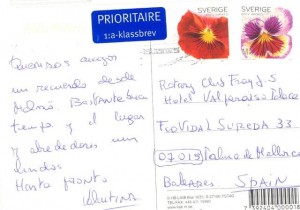 PRIORITAIRE
1:a-klassbrev
SVERIGE
SVERIGE
Queridos amigos
un recuerdo desde
Malmö. Bastante buen
tiempo y el lugar
y alrededores son
lindos
Hasta pronto
Rotary Club
Hotel Valparaiso
FCO VIDAL SUREDA 33
07015 Palma de Mallorca
Baleares SPAIN
7 392404 000018